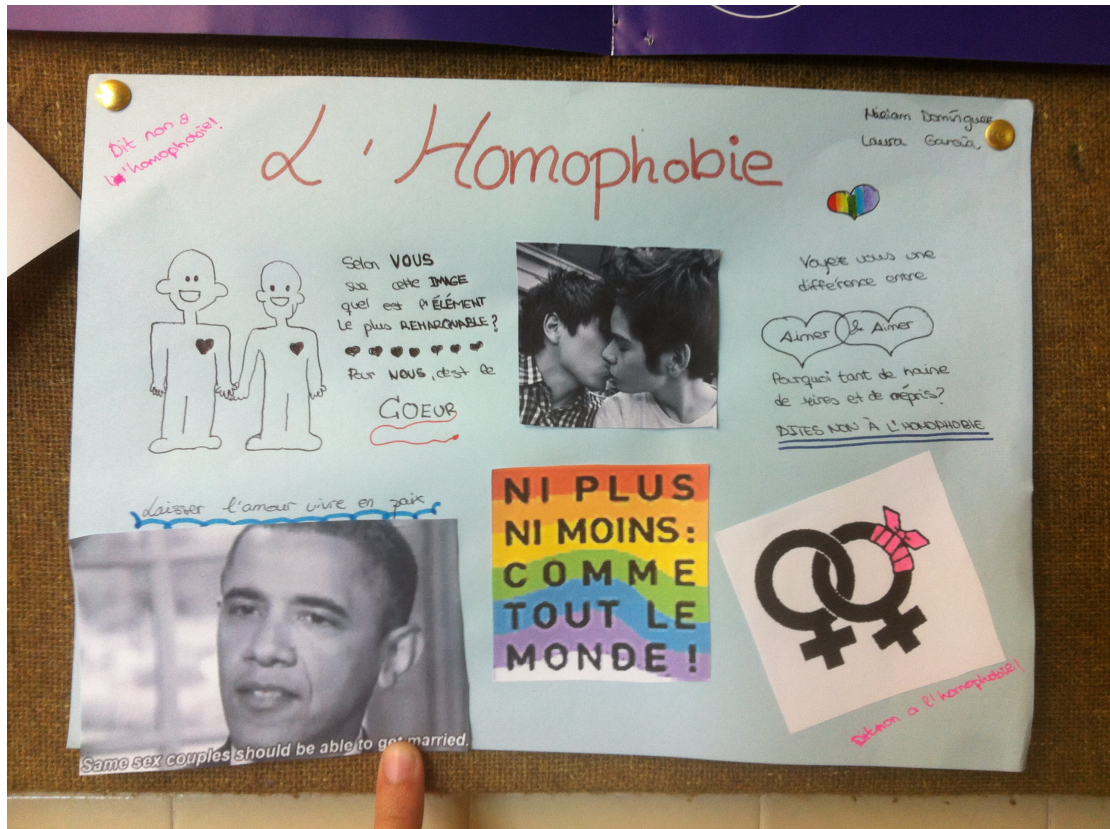 Dit non à
l'homophobie!
L'Homophobie
Miriam Domínguez
Laura García
Selon VOUS
sur cette IMAGE
quel est l'ÉLÉMENT
le plus REMARQUABLE?
Pour NOUS, c'est le
COEUR
Voyez vous une
différence entre
Aimer & Aimer
Pourquoi tant de haine
de rires et de mépris?
DITES NON À L'HOMOPHOBIE
Laisser l'amour vivre en paix
Same sex couples should be able to get married.
NI PLUS
NI MOINS:
COMME
TOUT LE
MONDE!
Dit non a l'homophobie!